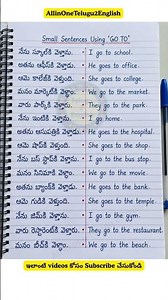 AllinOneTelugu2English
Small Sentences Using 'GO TO'
నేను స్కూల్‌కి వెళ్తాను. - I go to school.
అతను ఆఫీస్‌కి వెళ్తాడు. - He goes to office.
ఆమె కాలేజ్‌కి వెళ్తుంది. - She goes to college.
మనం మార్కెట్‌కి వెళ్తాం. - We go to the market.
వారు పార్క్‌కి వెళ్తారు. - They go to the park.
నేను ఇంటికి వెళ్తాను. - I go home.
అతను ఆసుపత్రికి వెళ్తాడు. - He goes to the hospital.
ఆమె షాప్‌కి వెళ్తుంది. - She goes to the shop.
నేను బస్ స్టాప్‌కి వెళ్తాను. - I go to the bus stop.
మనం సినిమాకి వెళ్తాం. - We go to the movie.
అతను బ్యాంక్‌కి వెళ్తాడు. - He goes to the bank.
ఆమె గుడికి వెళ్తుంది. - She goes to the temple.
నేను జిమ్‌కి వెళ్తాను. - I go to the gym.
వారు రెస్టారెంట్‌కి వెళ్తారు. - They go to the restaurant.
మనం బీచ్‌కి వెళ్తాం. - We go to the beach.
ఇలాంటి videos కోసం Subscribe చేసుకోండి